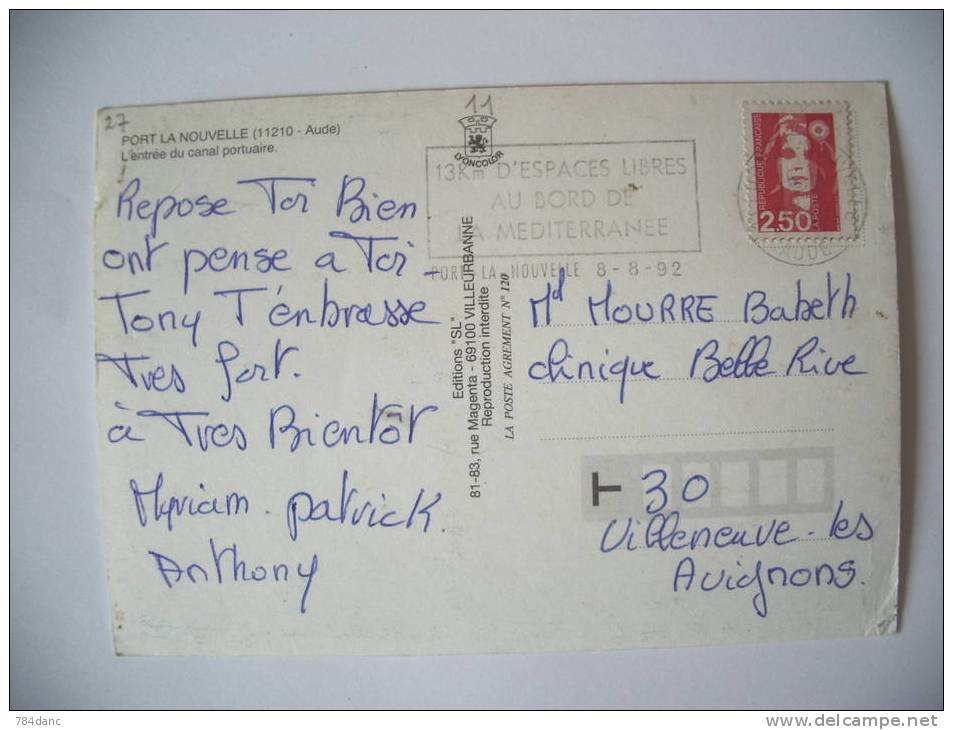 27
PORT LA NOUVELLE (11210 - Aude)
L'entrée du canal portuaire.
Repose Toi Bien
ont pense a Toi -
Tony T'énbrasse
Tres fort.
à Tres Bientôt
Myriam. patrick.
Anthony
11
LYONCOLOR
13Km D'ESPACES LIBRES
AU BORD DE
LA MEDITERRANEE
PORT-LA-NOUVELLE 8-8-92
Editions "SL"
81-83, rue Magenta - 69100 VILLEURBANNE
Reproduction interdite
LA POSTE AGREMENT N° 120
REPUBLIQUE FRANÇAISE
2.50
LA POSTE
AUDE
Md MOURRE Babeth
clinique Belle Rive
T 30
Villeneuve-les
Avignons.
784danc
www.delcampe.net